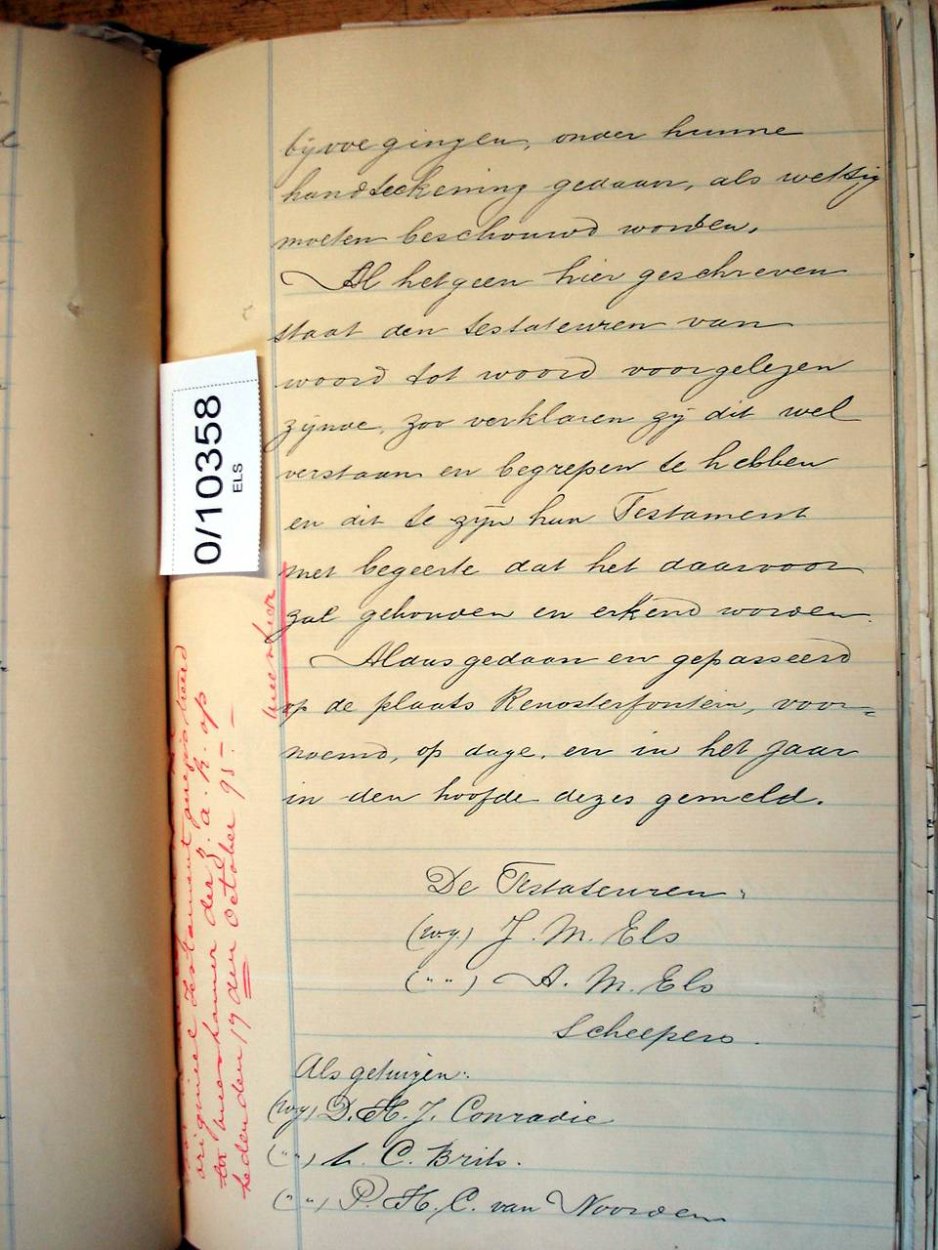 bijvoegingen, onder hunne
handteekening gedaan, als wettig
moeten beschouwd worden.
Al hetgeen hier geschreven
staat den testateuren van
woord tot woord voorgelezen
zijnde, zoo verklaren zij dit wel
verstaan en begrepen te hebben
en dit te zijn hun Testament
met begeerte dat het daarvoor
zal gehouden en erkend worden.
Aldus gedaan en gepasseerd
op de plaats Renosterfontein, voor=
noemd, op dage, en in het jaar
in den hoofde dezes gemeld.
De Testateuren:
(w.g.) J. M. Els
(" ") A. M. Els
Scheepers.
Als getuigen:
(w.g.) D. H. J. Conradie
(" ") C. Brits.
(" ") P. H. C. van Noorden
0/10358
ELS
origineel testament geregistreerd
ter weeskamer der Z. A. R. op
heden den 17 den October 95.-